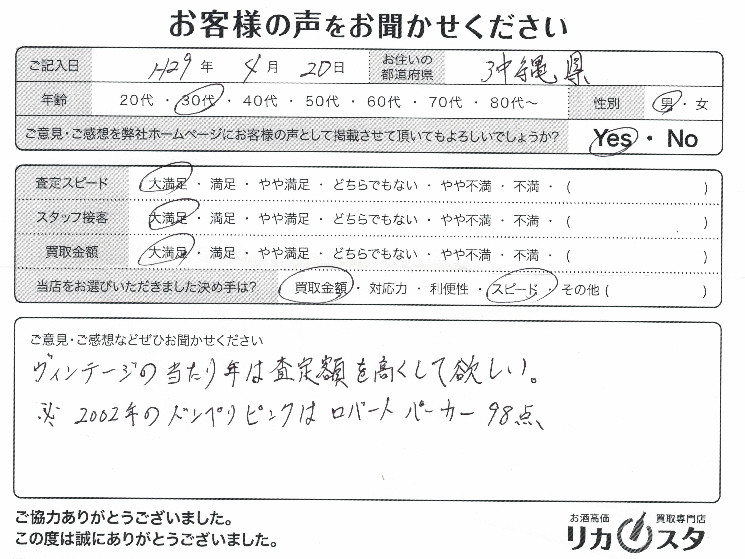 お客様の声をお聞かせください
ご記入日 H29 年 4 月 20 日 お住いの都道府県 沖縄県
年齢 20代 ・ 30代 ・ 40代 ・ 50代 ・ 60代 ・ 70代 ・ 80代～ 性別 男 ・ 女
ご意見・ご感想を弊社ホームページにお客様の声として掲載させて頂いてもよろしいでしょうか? Yes ・ No
査定スピード 大満足 ・ 満足 ・ やや満足 ・ どちらでもない ・ やや不満 ・ 不満 ・ ( )
スタッフ接客 大満足 ・ 満足 ・ やや満足 ・ どちらでもない ・ やや不満 ・ 不満 ・ ( )
買取金額 大満足 ・ 満足 ・ やや満足 ・ どちらでもない ・ やや不満 ・ 不満 ・ ( )
当店をお選びいただきました決め手は? 買取金額 ・ 対応力 ・ 利便性 ・ スピード ・ その他 ( )
ご意見・ご感想などぜひお聞かせください
ヴィンテージの当たり年は査定額を高くして欲しい。
※ 2002年のドンペリピンクは ロバート パーカー 98点、
ご協力ありがとうございました。
この度は誠にありがとうございました。
お酒高価 買取専門店
リカスタ